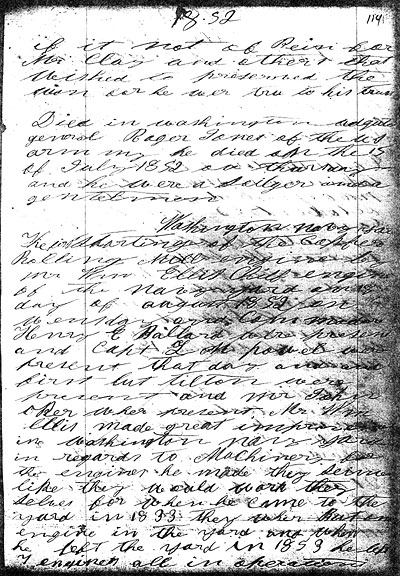 1852
114
if it not of Bein for
Mr Clay and others that
wished to preserved the
union for he wer tru to his trust
Died in washington adgitent
general Roger Jones of the US
army he died on the 15
of July 1852 on thursday
and he were a Solger and a
gentelmon
Washington navy yard
The starting of the Copper
Rolling Mill engine by
Mr Wm Ellis Cheff engineer
of the navy yard
day of august 1852 on
wensday and Commodore
Henry E Ballard were present
and Capt powel were
present that day and
first lut tilton were
present and Mr John
oker wher present Mr Wm
Ellis made great improvement
in washington navy yard
in regards to Machinery for
the engines he made they seemed
like they would work them
selves for when he came to the
yard in 1833 they wher but one
engine in the yard and when
he left the yard in 1853 he left
7 engines all in operation